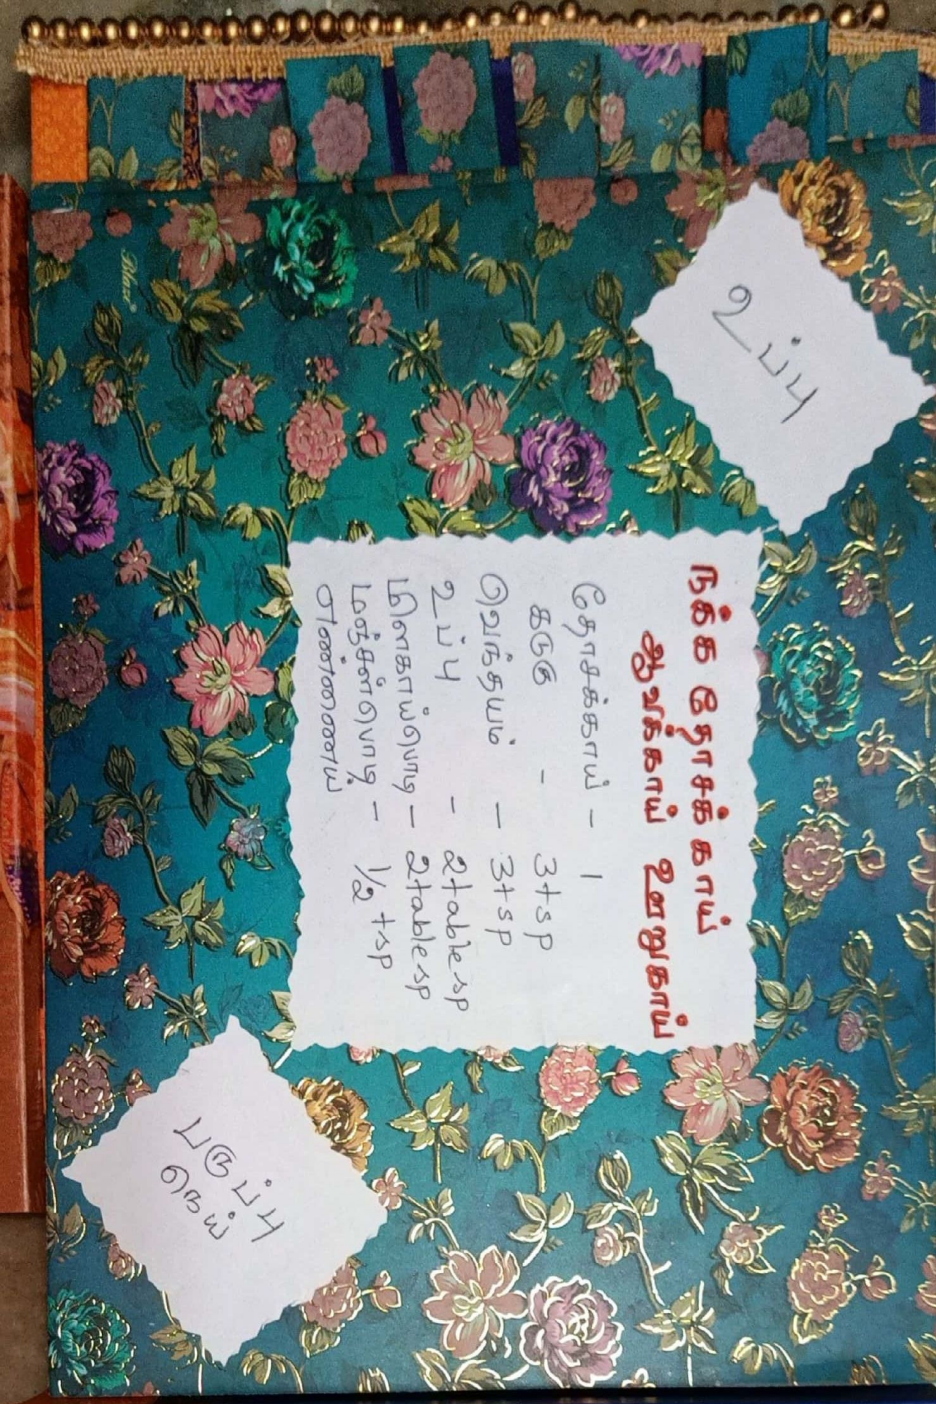 உப்பு
நக்க தோசக்காய்
ஆவக்காய் ஊறுகாய்
தோசக்காய் - 1
கடுகு - 3tsp
வெந்தயம் - 3tsp
உப்பு - 2tablesp
மிளகாய்பொடி - 2tablesp
மஞ்சள்பொடி - 1/2 tsp
எண்ணைய்
பருப்பு
நெய்